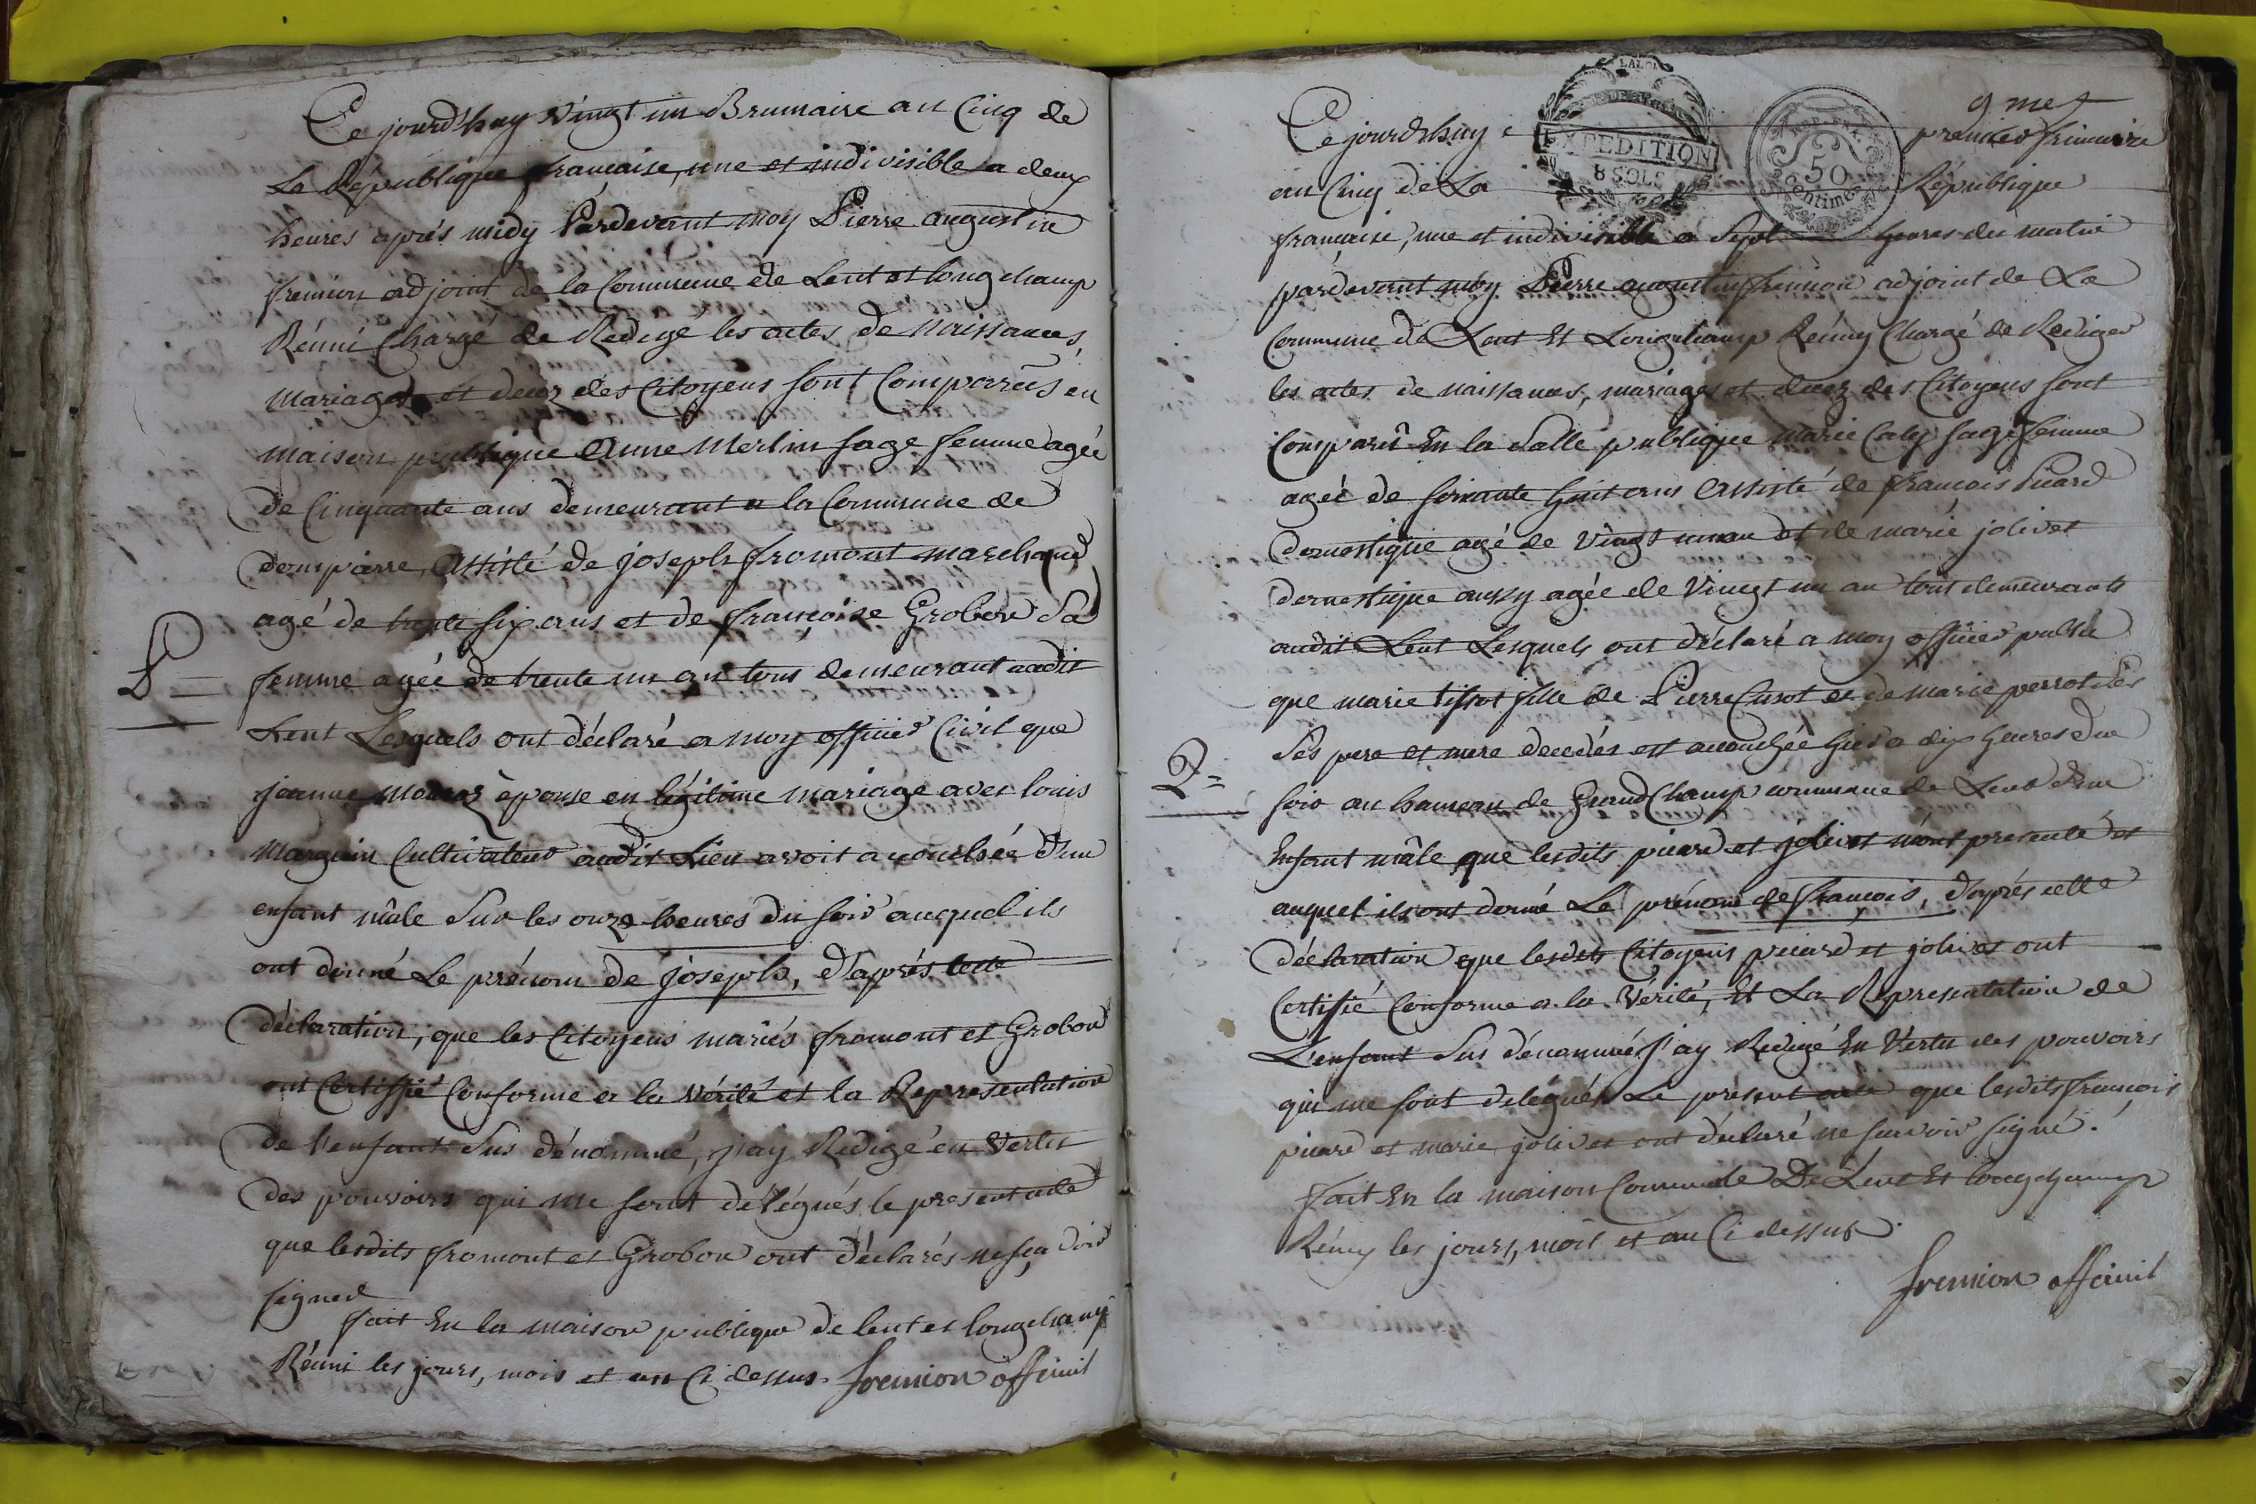 Ce jourd'huy vingt un Brumaire an Cinq de
La République francaise, une et indivisible a deux
heures aprés midy Pardevant moy Pierre augustin
fremion adjoint de la Commune de Lent et longchamp
Réuni Chargé de Redige les actes de naissances,
mariages et décez des Citoyens sont Comparües en
maison publique Anne Merlin sage femme agée
de Cinquante ans demeurant a la Commune de
dompiarre, Assisté de joseph fromont marchand
agé de trente six ans et de françoise Grobon Sa
femme agée de trente un an tous demeurant audit
Lent Lesquels ont déclaré a moy officier Civil que
jeanne épouse en légitime mariage avec louis
Manguin Cultivateur audit Lieu avoit accouchée d'un
enfant mâle Sur les onze heures du soir auquel ils
ont donné Le prénom de joseph, d'aprés cette
déclaration, que les Citoyens mariés fromont et Grobon
ont Certiffié Conforme a la vérité et la Representation
de l'enfant Sus dénommé, j'ay Redigé en Vertu
des pouvoirs qui me sont delégués le present acte
que lesdits fromont et Grobon ont déclarés ne sçavoir
signer
fait En la maison publique de lent et longchamp
Réuni les jours, mois et an Ci dessus. fremion off civil
1
9 me
Ce jourdhuy premier frimaire
EXPEDITION
8 SOLS
REP. FRA.
50
Centimes
an Cinq de La République
française, une et indivisible a Sept heures du matin
pardevant moy Pierre augustin fremion adjoint de La
Commune de Lent Et Longchamp Réuny Chargé de Rediger
les actes de naissances, mariages et decez des Citoyens sont
Comparû En la Salle publique Marie Caly sage femme
ageé de soixante huit ans Assisté de françois Picard
domestique agé de Vingt un an et de marie jolivet
domestique aussy agée de Vingt un an tous demeurants
audit Lent Lesquels ont déclaré a moy officier public
que marie tissot fille de Pierre tissot et de marie perrot
Ses pere et mere decedés est accouchée hier a dix heures du
soir au hameau de Grand Champ commune de Lent d'un
Enfant mâle que lesdits picard et jolivet m'ont presenté et
auquel ils ont donné Le prénom de françois, d'aprés cette
déclaration que lesdits Citoyens picard et jolivet ont
Certifié Conforme a la Vérité, Et La Representation de
L'enfant Sus dénommé j'ay Redigé En Vertu des pouvoirs
qui me sont delégués Le présent acte que lesdits françois
picard et marie jolivet ont déclaré ne scavoir signé.
fait En la maison Commune De Lent Et longchamp
Réuny les jours, mois et an Ci dessus.
fremion off civil
2